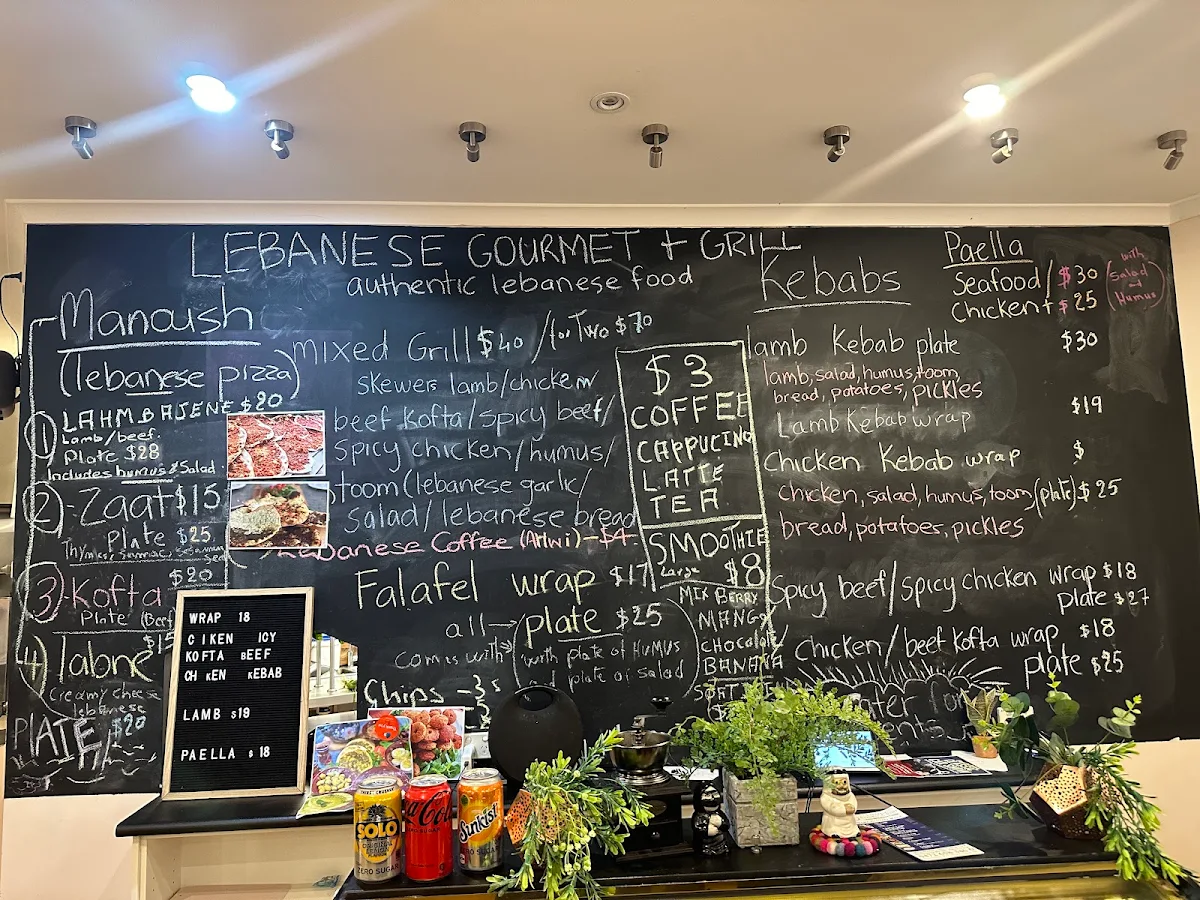 LEBANESE GOURMET + GRILL
authentic lebanese food
Manoush
(lebanese pizza)
1 LAHMBAJENE $20
Lamb/beef.
Plate $28
Includes humus & Salad.
2 - Zaat $15
Plate $25.
$20
3 Kofta
Plate (Beef
4 Labne $15
Creamy cheese
lebanese
PLATE $20
mixed Grill $40 / for Two $70
skewers lamb/chicken/
beef Kofta/spicy beef/
Spicy chicken/humus/
toom(lebanese garlic/
salad/lebanese bread
Lebanese Coffee (Ahwi) - $4.
Falafel wrap $17
all → plate $25
comes with → with plate of HUMUS
and plate of salad
Chips
$3
COFFEE
CAPPUCINO
LATTE
TEA
SMOOTHIE
Large $8
MIX BERRY
MANGO
CHOCOLATE
BANANA
Kebabs
lamb Kebab plate $30
lamb, salad, humus, toom,
bread, potatoes, pickles
Lamb Kebab wrap $19
Chicken Kebab wrap $
chicken, salad, humus, toom, (plate) $25
bread, potatoes, pickles
Spicy beef/spicy chicken wrap $18
plate $27
chicken/beef kofta wrap $18
plate $25
Paella
Seafood/ $30
chicken + $25
(with
Salad
+
Humus)
WRAP 18
C IKEN ICY
KOFTA BEEF
CH KEN KEBAB
LAMB $19
PAELLA $ 18
SOLO
ORIGINAL
ZERO SUGAR
Coca-Cola
Sunkist